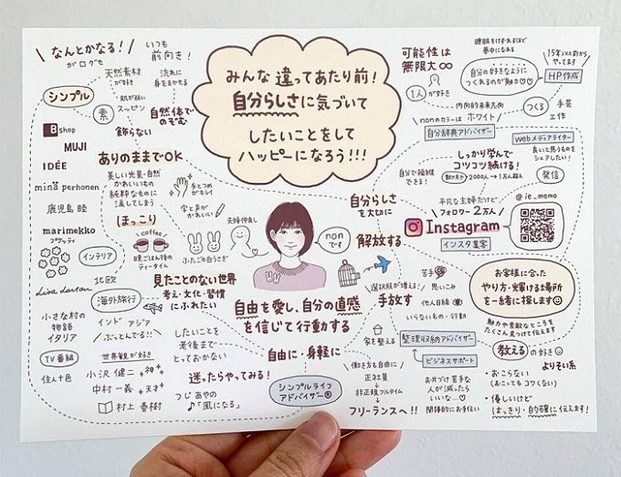 なんとかなる!
がログセ
いつも
前向き!
シンプル
天然素材
が好き
流れに
身をまかせる
素
肌が弱い
スッピン
自然体で
のぞむ
飾らない
B shop
MUJI
IDÉE
minä perhonen
鹿児島 睦
marimekko
ありのままでOK
美しい光景・自然
かわいいもの
純粋なものに
涙してしまう
ほっこり
coffee
昼ごはん後の
ティータイム
インテリア
Lisa Larson
北欧
海外旅行
インド アジア
ぶっとんでる!!
小さな村の
物語
イタリア
TV番組
世界観が好き
住人十色
小沢 健二 神
中村 一義 天才
村上 春樹
みんな 違ってあたり前!
自分らしさに気づいて
したいことをして
ハッピーになろう!!!
字と耳が
かわいい
夫婦仲良し
ふたごの白うさぎ
nonです
見たことのない世界
考え・文化・習慣
にふれたい
自由を愛し、自分の直感
を信じて行動する
したいことを
老後まで
とっておかない
自由に・身軽に
迷ったらやってみる!
つじ あやの
♪「風になる」
シンプルライフ
アドバイザー®
可能性は
無限大∞
1人が好き
自分の好きなように
つくれるのが魅力♡♡
15年以上前から
やってます
HP作成
内向的未来志向
つくる
手芸
工作
nonのカラーは ホワイト
自分辞典アドバイザー
webメディアライター
しっかり学んで
コツコツ続ける!
良いと思うものを
シェアしたい!
発信
2000人→1万人超え
自分らしさ
を大切に
解放する
平凡な主婦だけど
フォロワー2万人
@ie_memo
Instagram
インスタ集客
選択肢が増え!
苦手
思いこみ
手放す
他人目線
いらないもの・行動
お客様に合った
やり方・輝ける場所
を一緒に探します
魅力や素敵なところを
たくさん見つけて伝えます
家を整える
整理収納アドバイザー
ビジネスサポート
教えるの好き
よりそい系
・おこらない
(おこってもコワくない)
・優しいけど
はっきり・的確に伝えます!
働き方も自由に
正社員
非正規フルタイム
フリーランスへ!!
お片づけ苦手な
人が減ったら
いいな…♡
間接的にお手伝い